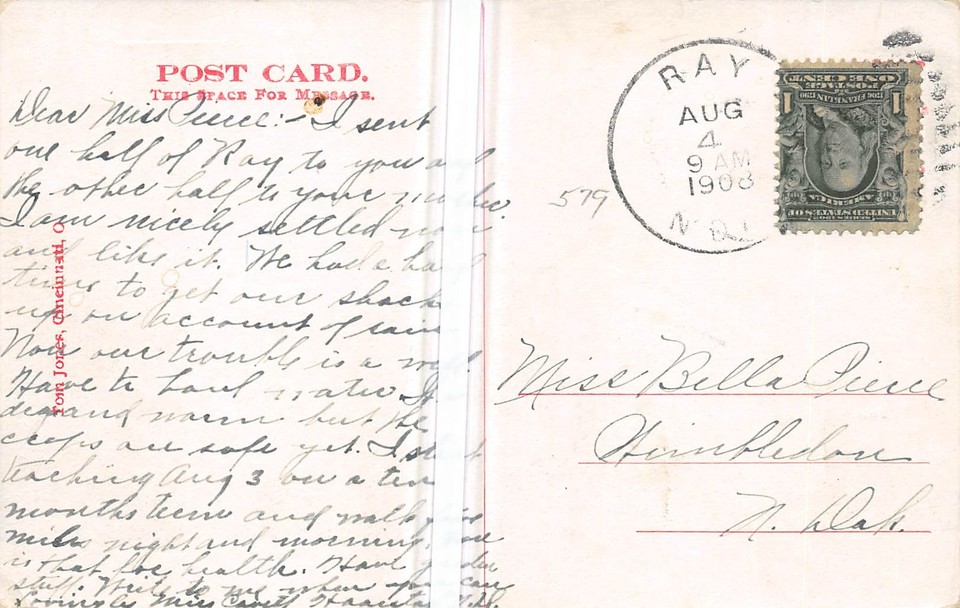 POST CARD.
THIS SPACE FOR MESSAGE.
Dear Miss Pierce:- I sent
one half of Ray to you and
the other half to your mother.
I am nicely settled now
and like it. We had a bad
time to get our shack
up on account of rain
Now our trouble is a well.
Have to haul water. It
dry and warm but the
crops are safe yet. I start
teaching Aug 3 on a ten
months term and walk two
miles night and morning.
is that for health. Have
stuff. Write to me when you can
Lovingly Miss N.D.
Tom Jones, Cincinnati, O.
579
RAY
AUG
4
9 AM
1908
N.D.
SERIES 1902
UNITED STATES OF
AMERICA
1706 FRANKLIN 1790
POSTAGE
ONE CENT
1 1
Miss Bella Pierce
Wimbledon
N. Dak.